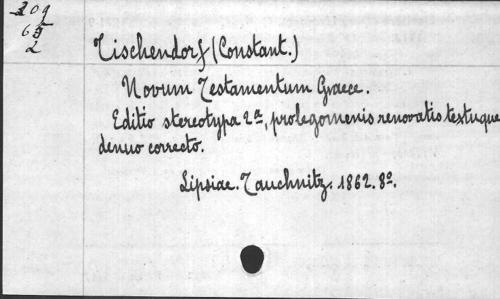 209
65
2
Tischendorf (Constant.)
Novum Testamentum Graece.
Editio stereotypa 2a, prolegomenis renovatis textuque
denuo correcto.
Lipsiae. Tauchnitz. 1862. 8o.